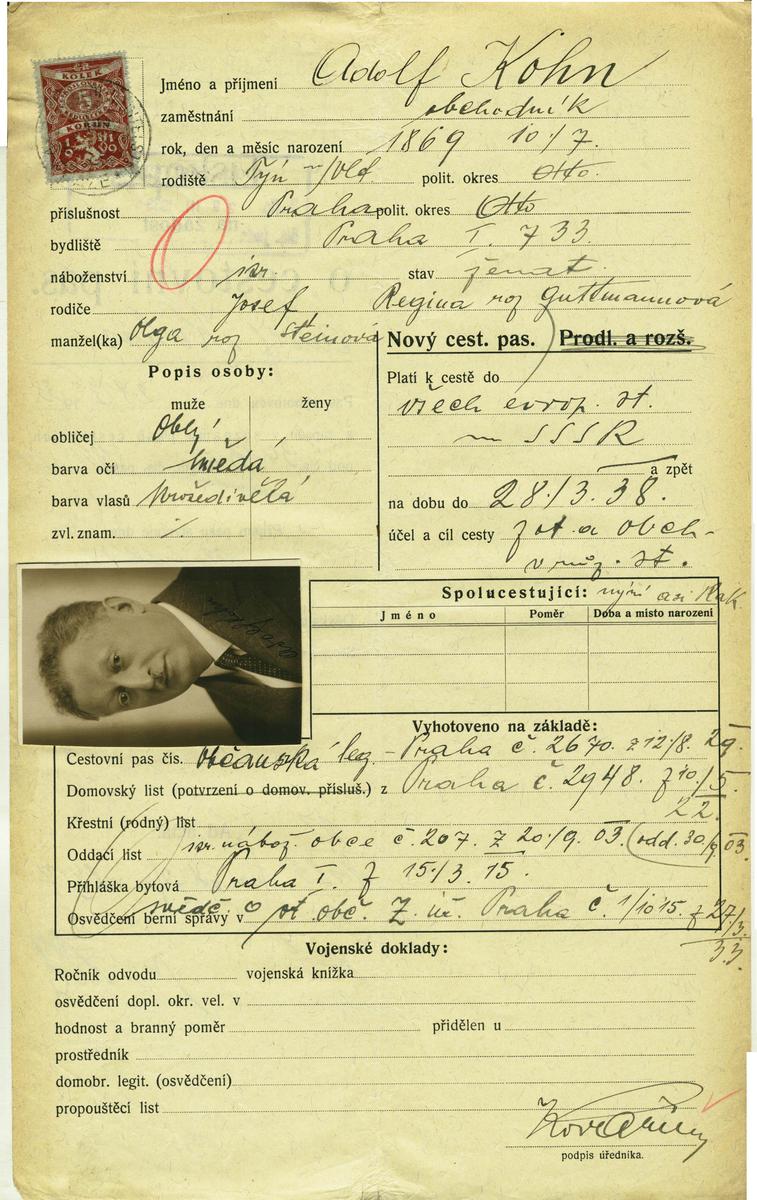 KOLEK
5
KORUN
Jméno a příjmení Adolf Kohn
zaměstnání obchodník
rok, den a měsíc narození 1869 10/7.
rodiště Týn n/Vlt polit. okres dtto.
příslušnost Praha polit. okres dtto
bydliště Praha I. 733.
náboženství isr. stav ženat.
rodiče Josef Regina roz Guttmannová
manžel(ka) Olga roz Steinová
Nový cest. pas. Prodl. a rozš.
Popis osoby:
muže ženy
obličej oblý
barva očí hnědá
barva vlasů prošedivělá
zvl. znam. %
Platí k cestě do
všech evrop. st.
m SSSR
a zpět
na dobu do 28/3. 38.
účel a cíl cesty zot. a obch.
v růz. st.
Spolucestující: nyní asi Rak.
Jméno Poměr Doba a místo narození
Vyhotoveno na základě:
Cestovní pas čís. občanská leg. - Praha č. 2670. z 12/8. 29.
Domovský list (potvrzení o domov. přísluš.) z Praha č. 2948. z 10/5.
22.
Křestní (rodný) list
Oddací list isr. nábož. obce č. 207. z 20/9. 03. (odd. 30/9 03.
Přihláška bytová Praha I. z 15/3. 15.
Osvědčení berní správy v svědč. o st. obč. Z. úř. Praha č. 1/1015. z 27/3.
33.
Vojenské doklady:
Ročník odvodu vojenská knížka
osvědčení dopl. okr. vel. v
hodnost a branný poměr přidělen u
prostředník
domobr. legit. (osvědčení)
propouštěcí list
podpis úředníka.